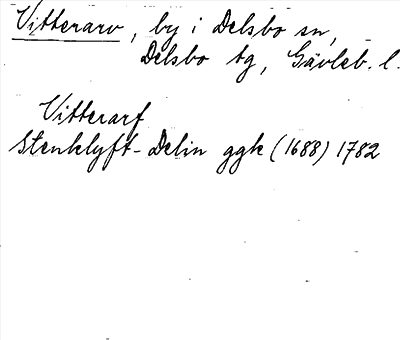 Vitterarv, by i Delsbo sn,
Delsbo tg, Gävleb. l.
Vitterarf
Stenklyft-Delin ggk (1688) 1782